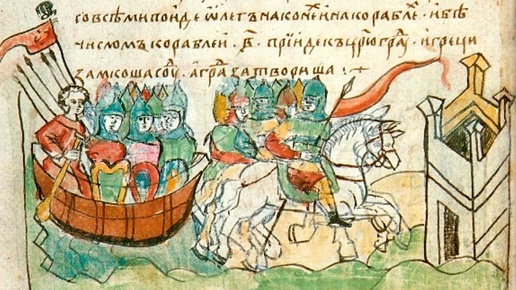 совсѣми поиде ѡлегъ на конеи и на корабле . и бѣ
числомъ кораблеи . в҃ . прїиде къ цр҃югра ⷣ . и греци
замкоша соу ⷣ . а гра ⷣ затвориша :~